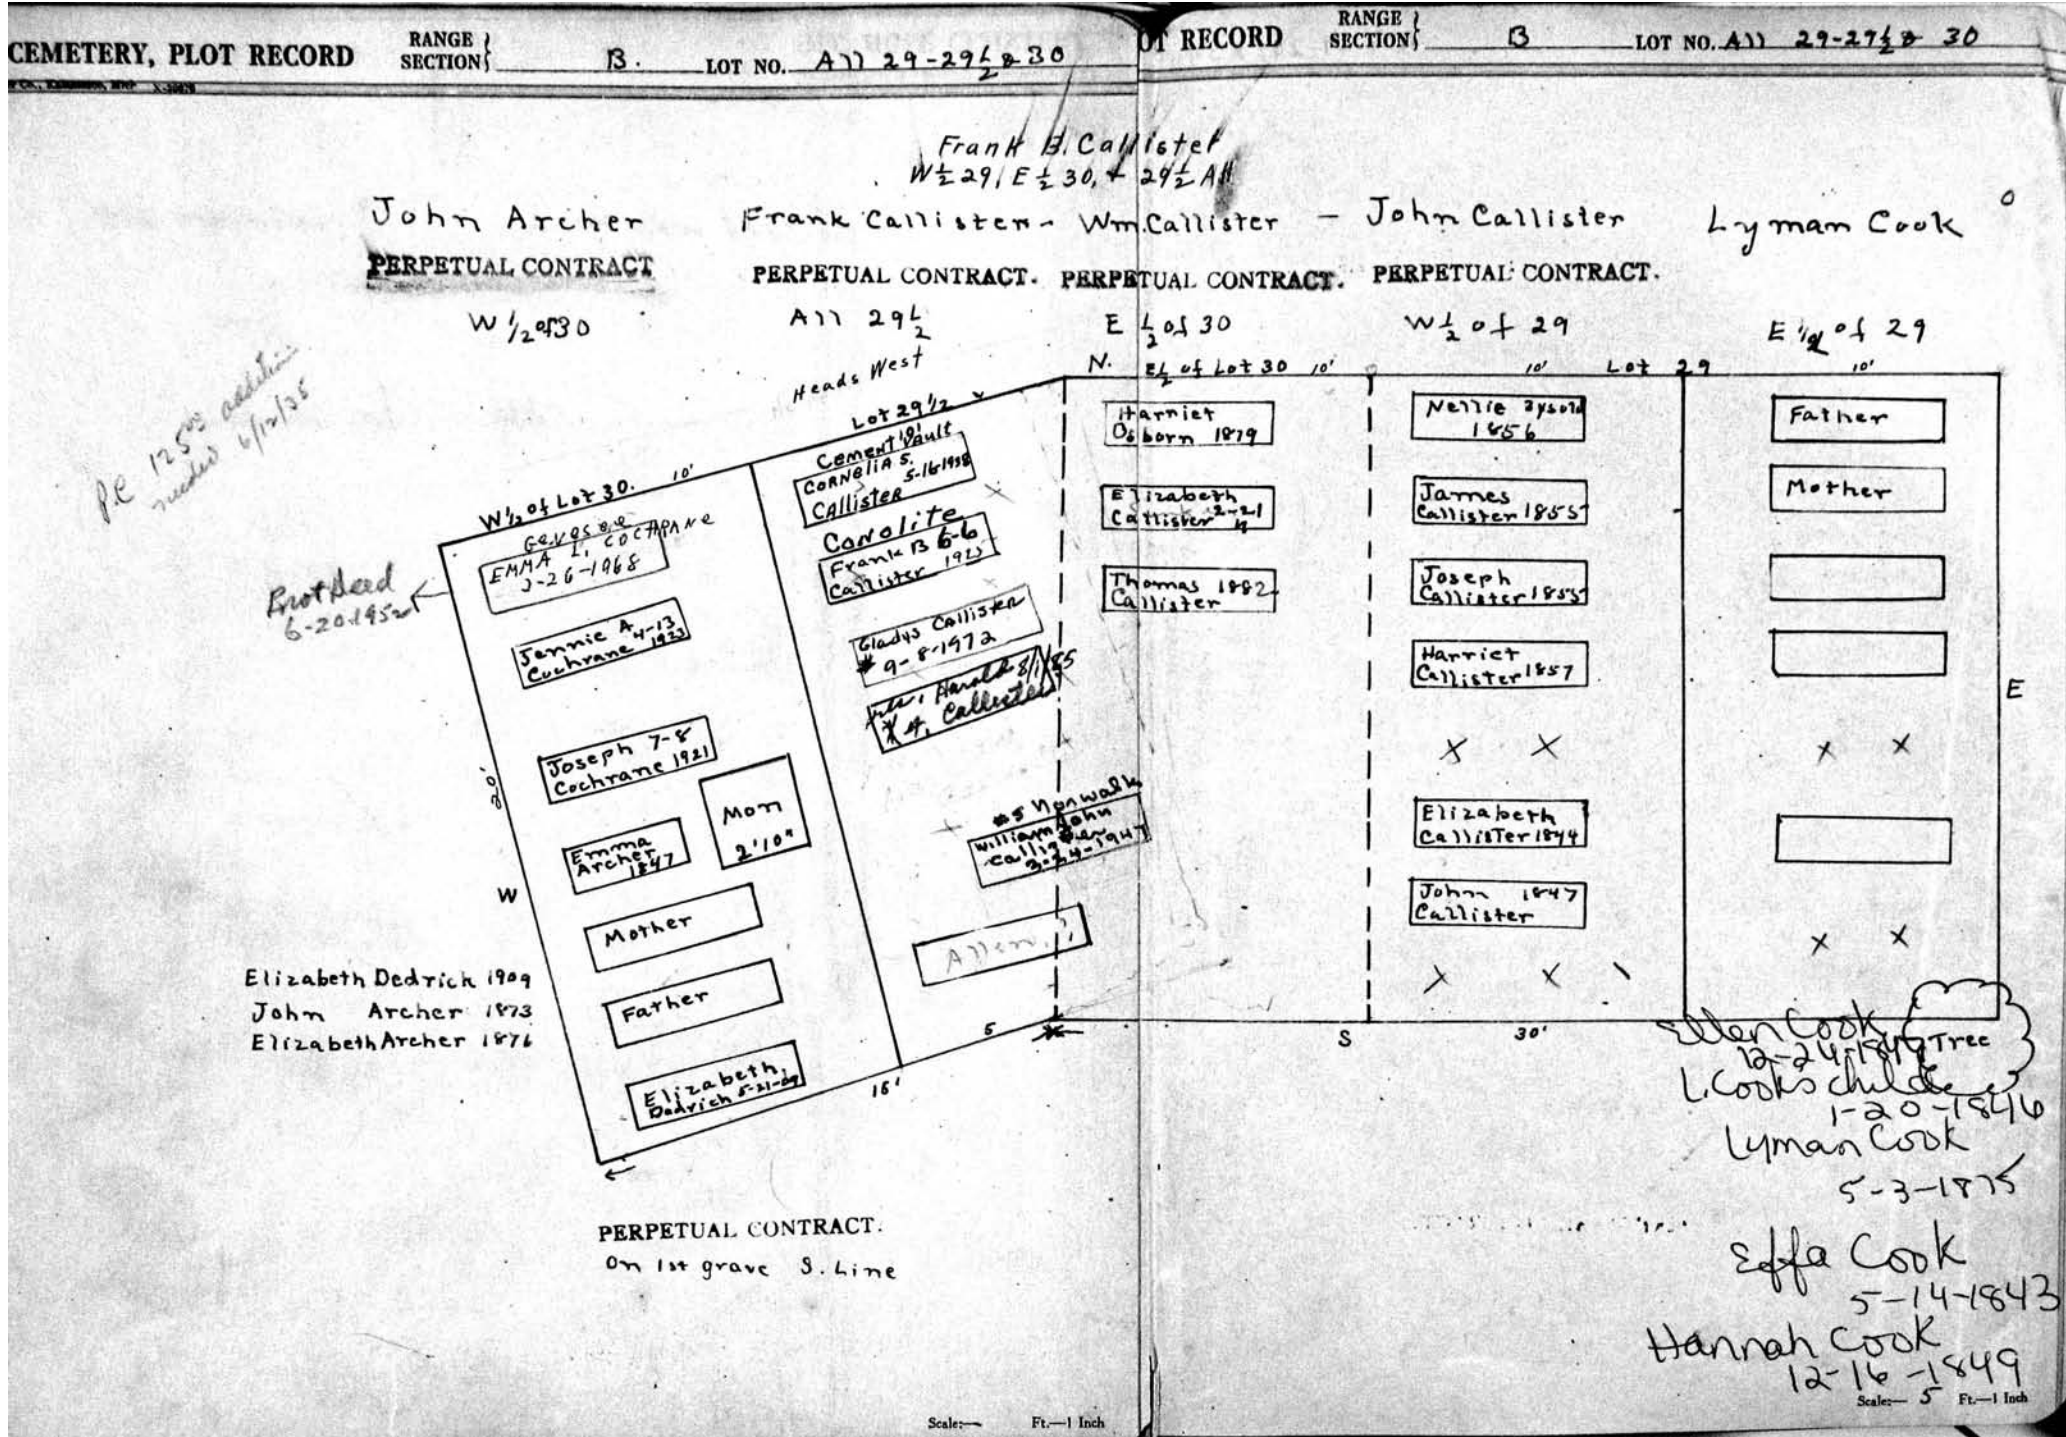 CEMETERY, PLOT RECORD RANGE SECTION B. LOT NO. All 29-29½ & 30
OT RECORD RANGE SECTION B LOT NO. All 29-29½ & 30
Frank B. Callister
W½ 29, E½ 30, + 29½ All
John Archer
PERPETUAL CONTRACT
W ½ of 30
Frank Callister -
PERPETUAL CONTRACT.
All 29½
Wm. Callister -
PERPETUAL CONTRACT.
E ½ of 30
John Callister
PERPETUAL CONTRACT.
W ½ of 29
Lyman Cook
E ½ of 29
P.C 125 00 addition
needed 6/12/35
Heads West
Deed
6-20-1952
W½ of Lot 30. 10'
Genesee
EMMA L. COCHRANE
3-26-1968
Jennie A 4-13
Cochrane 1923
Joseph 7-8
Cochrane 1921
Mon
2'10"
Emma
Archer
1847
Mother
Father
Elizabeth
Dedrich 5-21-09
20'
W
15'
Elizabeth Dedrich 1909
John Archer 1873
Elizabeth Archer 1876
Lot 29½
10'
Cement Vault
CORNELIA S.
5-16-1938
CALLISTER
Conolite
Frank B 6-6
Callister 1925
Gladys Callister
# 9-8-1972
Harold 8/1/85
Callister
#5 Norwalk
William John
Callister
3-24-1947
Allen ?
5
N. E½ of Lot 30 10'
Harriet
Osborn 1879
Elizabeth
Callister 2-21
Thomas 1882
Callister
10' Lot 29
Nellie 2ys old
1856
James
Callister 1855
Joseph
Callister 1855
Harriet
Callister 1857
X X
Elizabeth
Callister 1844
John 1847
Callister
X X
10'
Father
Mother
X X
X X
E
S 30'
Tree
Ellen Cook
12-24-184
L. Cook's child
1-20-1846
Lyman Cook
5-3-1875
Effa Cook
5-14-1843
Hannah Cook
12-16-1849
PERPETUAL CONTRACT.
On 1st grave S. Line
Scale:— Ft.—1 Inch
Scale:— 5 Ft.—1 Inch